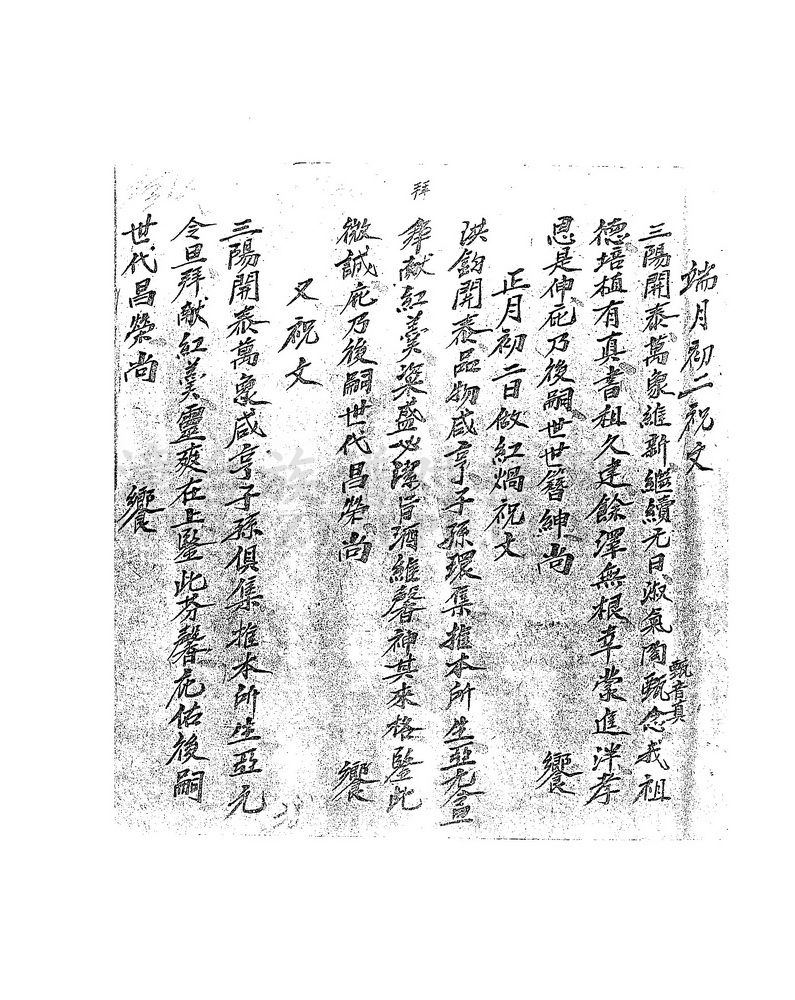 端月初二祝文
三陽開泰萬象維新繼續元日淑氣陶甄念我祖
甄音真
德培植有真書祖久建餘澤無根幸蒙進泮孝
思是伸庇乃後嗣世世簪紳尚 饗
正月初二日做紅煱祝文
洪鈞開泰品物咸亨子孫環集推本所生亞元僉
拜
奉献紅羹粢盛必潔旨酒維馨神其來格鑒此
微誠庇乃後嗣世代昌榮尚 饗
又祝文
三陽開泰萬象咸亨子孫俱集推本所生亞元
令旦拜献紅羹靈爽在上鑒此芬馨庇佑後嗣
世代昌榮尚 饗